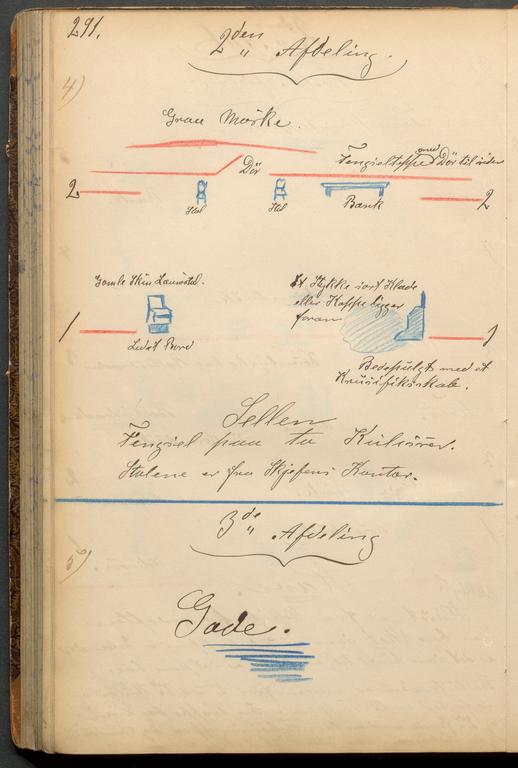 291.
2den Afdeling.
4)
Graa Mørke.
Dör
Fengselteppe med Dör til siden
2.
Stol
Stol
Bænk
2
Gamle Skin Lænestol.
Et Stykke sort Klæde
eller Kappe ligger
foran
1
Lidet Bord
1
Bedepulpt med et
Krusifiks
Sellen
Fengsel paa to Kulisser.
Stolene er fra Skjefens Kontor.
3de Afdeling
5)
Gade.